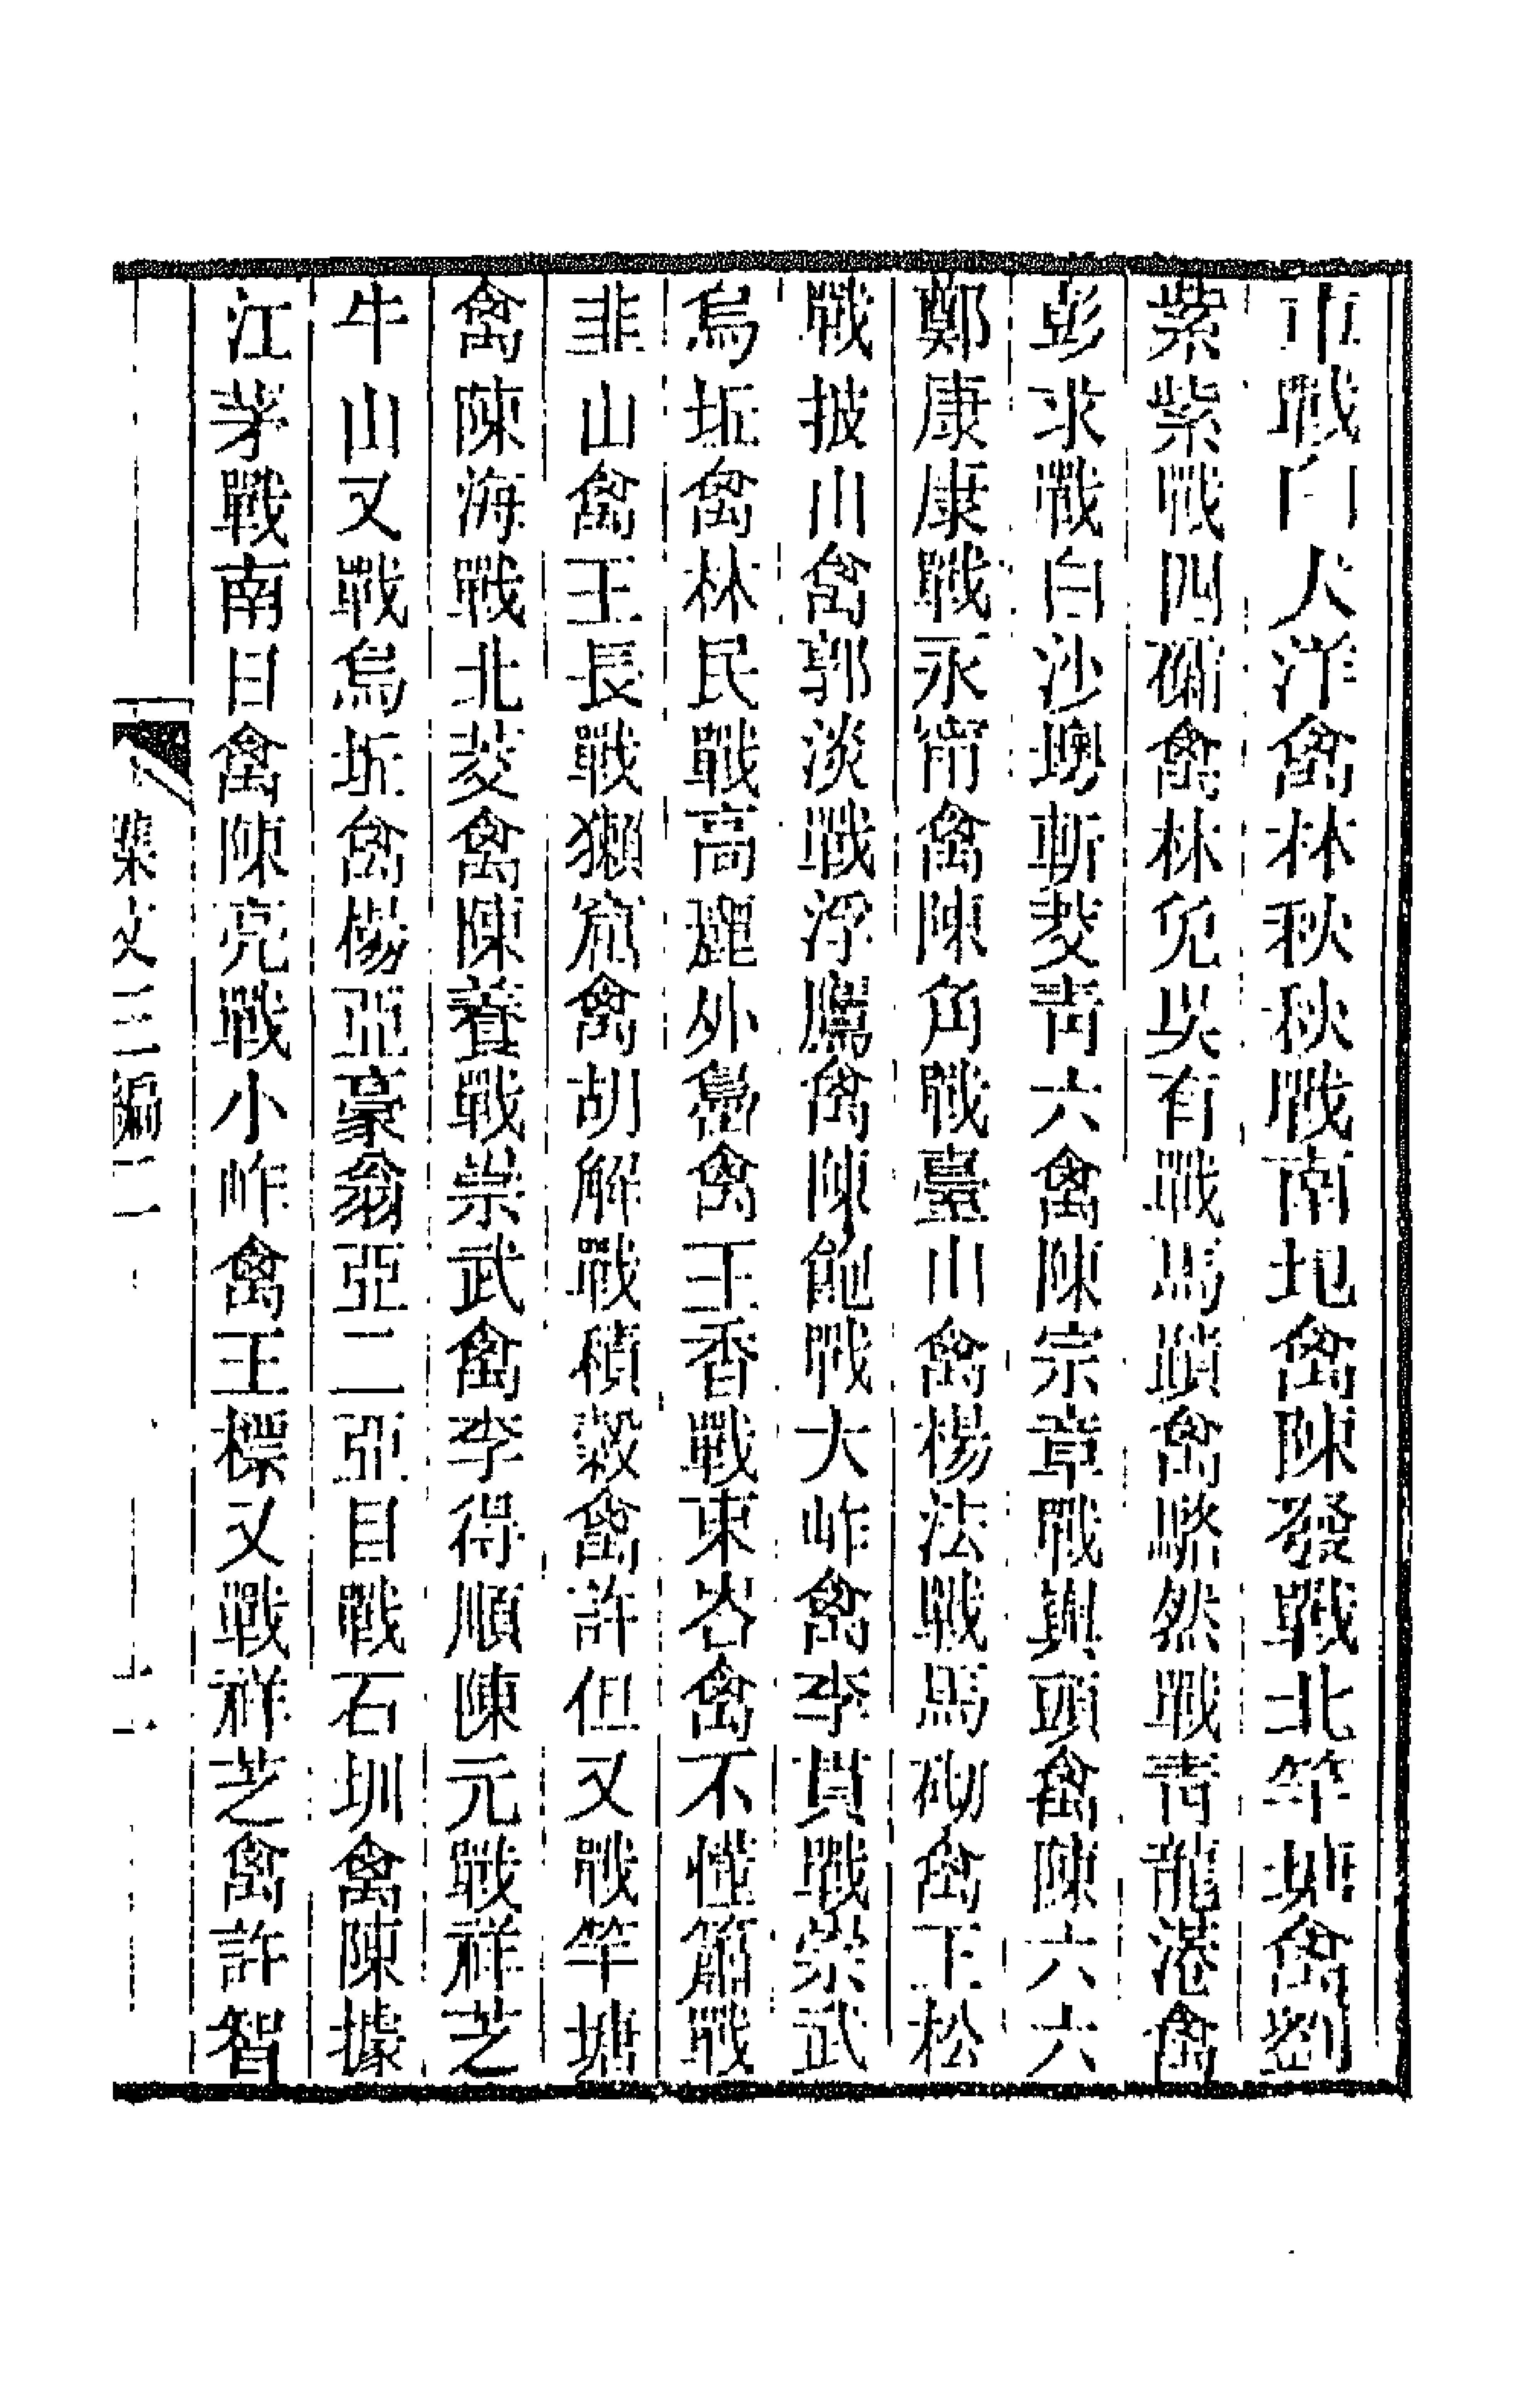 市戰白犬洋禽林秋秋戰南圯禽陳發戰北竿塘禽劉
紫紫戰四礵禽林兜吳有戰馬蹟禽縣然戰青龍港禽
彭求戰白沙墺斬㚏青六禽陳宗章戰興頭禽陳六六
鄭康康戰永甯禽陳角戰臺山禽楊法戰馬砌禽王松
戰披山禽郭淡戰浮鷹禽陳飽戰大岞禽李貫戰崇武
烏坵禽林民戰高麗外島禽王香戰東峇禽不懂簫戰
韭山禽王長戰獺窟禽胡解戰積穀禽許但又戰竿塘
禽陳海戰北茭禽陳養戰崇武禽李得順陳元戰祥芝
牛山又戰烏坵禽楊亞豪翁亞二亞目戰石圳禽陳據
江茅戰南日禽陳亮戰小岞禽王標又戰祥芝禽許智
集文三編二